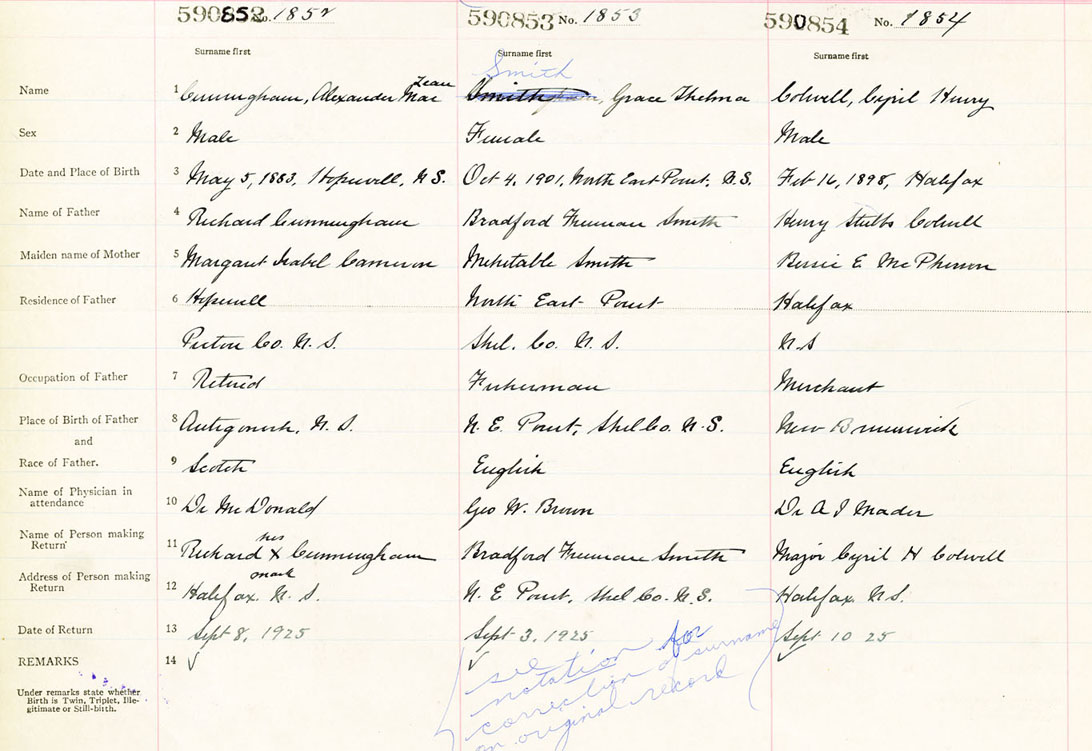 590852 No. 1852 590853 No. 1853 590854 No. 1854
Surname first Surname first Surname first
Smith
Jean
Name 1 Cunningham, Alexander Mac , Grace Thelma Colwell, Cyril Henry
Sex 2 Male Female Male
Date and Place of Birth 3 May 5, 1883, Hopewell, N.S. Oct 4, 1901, North East Point, N.S. Feb 16, 1898, Halifax
Name of Father 4 Richard Cunningham Bradford Freeman Smith Henry Stubbs Colwell
Maiden name of Mother 5 Margaret Isabel Cameron Mehetable Smith Bessie E McPherson
Residence of Father 6 Hopewell North East Point Halifax
Pictou Co. N.S. Shel. Co. N.S. N.S
Occupation of Father 7 Retired Fisherman Merchant
Place of Birth of Father 8 Antigonish, N.S. N.E. Point, Shel Co. N.S. New Brunswick
and
Race of Father. 9 Scotch English English
Name of Physician in
attendance 10 Dr McDonald Geo W. Brown Dr A J Mader
Name of Person making
Return 11 Richard his X mark Cunningham Bradford Freeman Smith Major Cyril H Colwell
Address of Person making
Return 12 Halifax. N.S. N.E Point, Shel Co. N.S. Halifax N.S.
Date of Return 13 Sept 8, 1925 Sept 3, 1925 Sept 10 25
REMARKS 14 ✓ ✓ ✓
(see
notation for
correction of surname
on original record)
Under remarks state whether
Birth is Twin, Triplet, Ille-
gitimate or Still-birth.